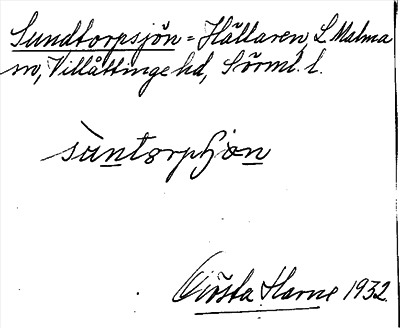 Sundtorpsjön = Hällaren, L. Malma
sn, Villåttinge hd, Sörml. l.
suntorpsjön
Gösta Harne 1932.